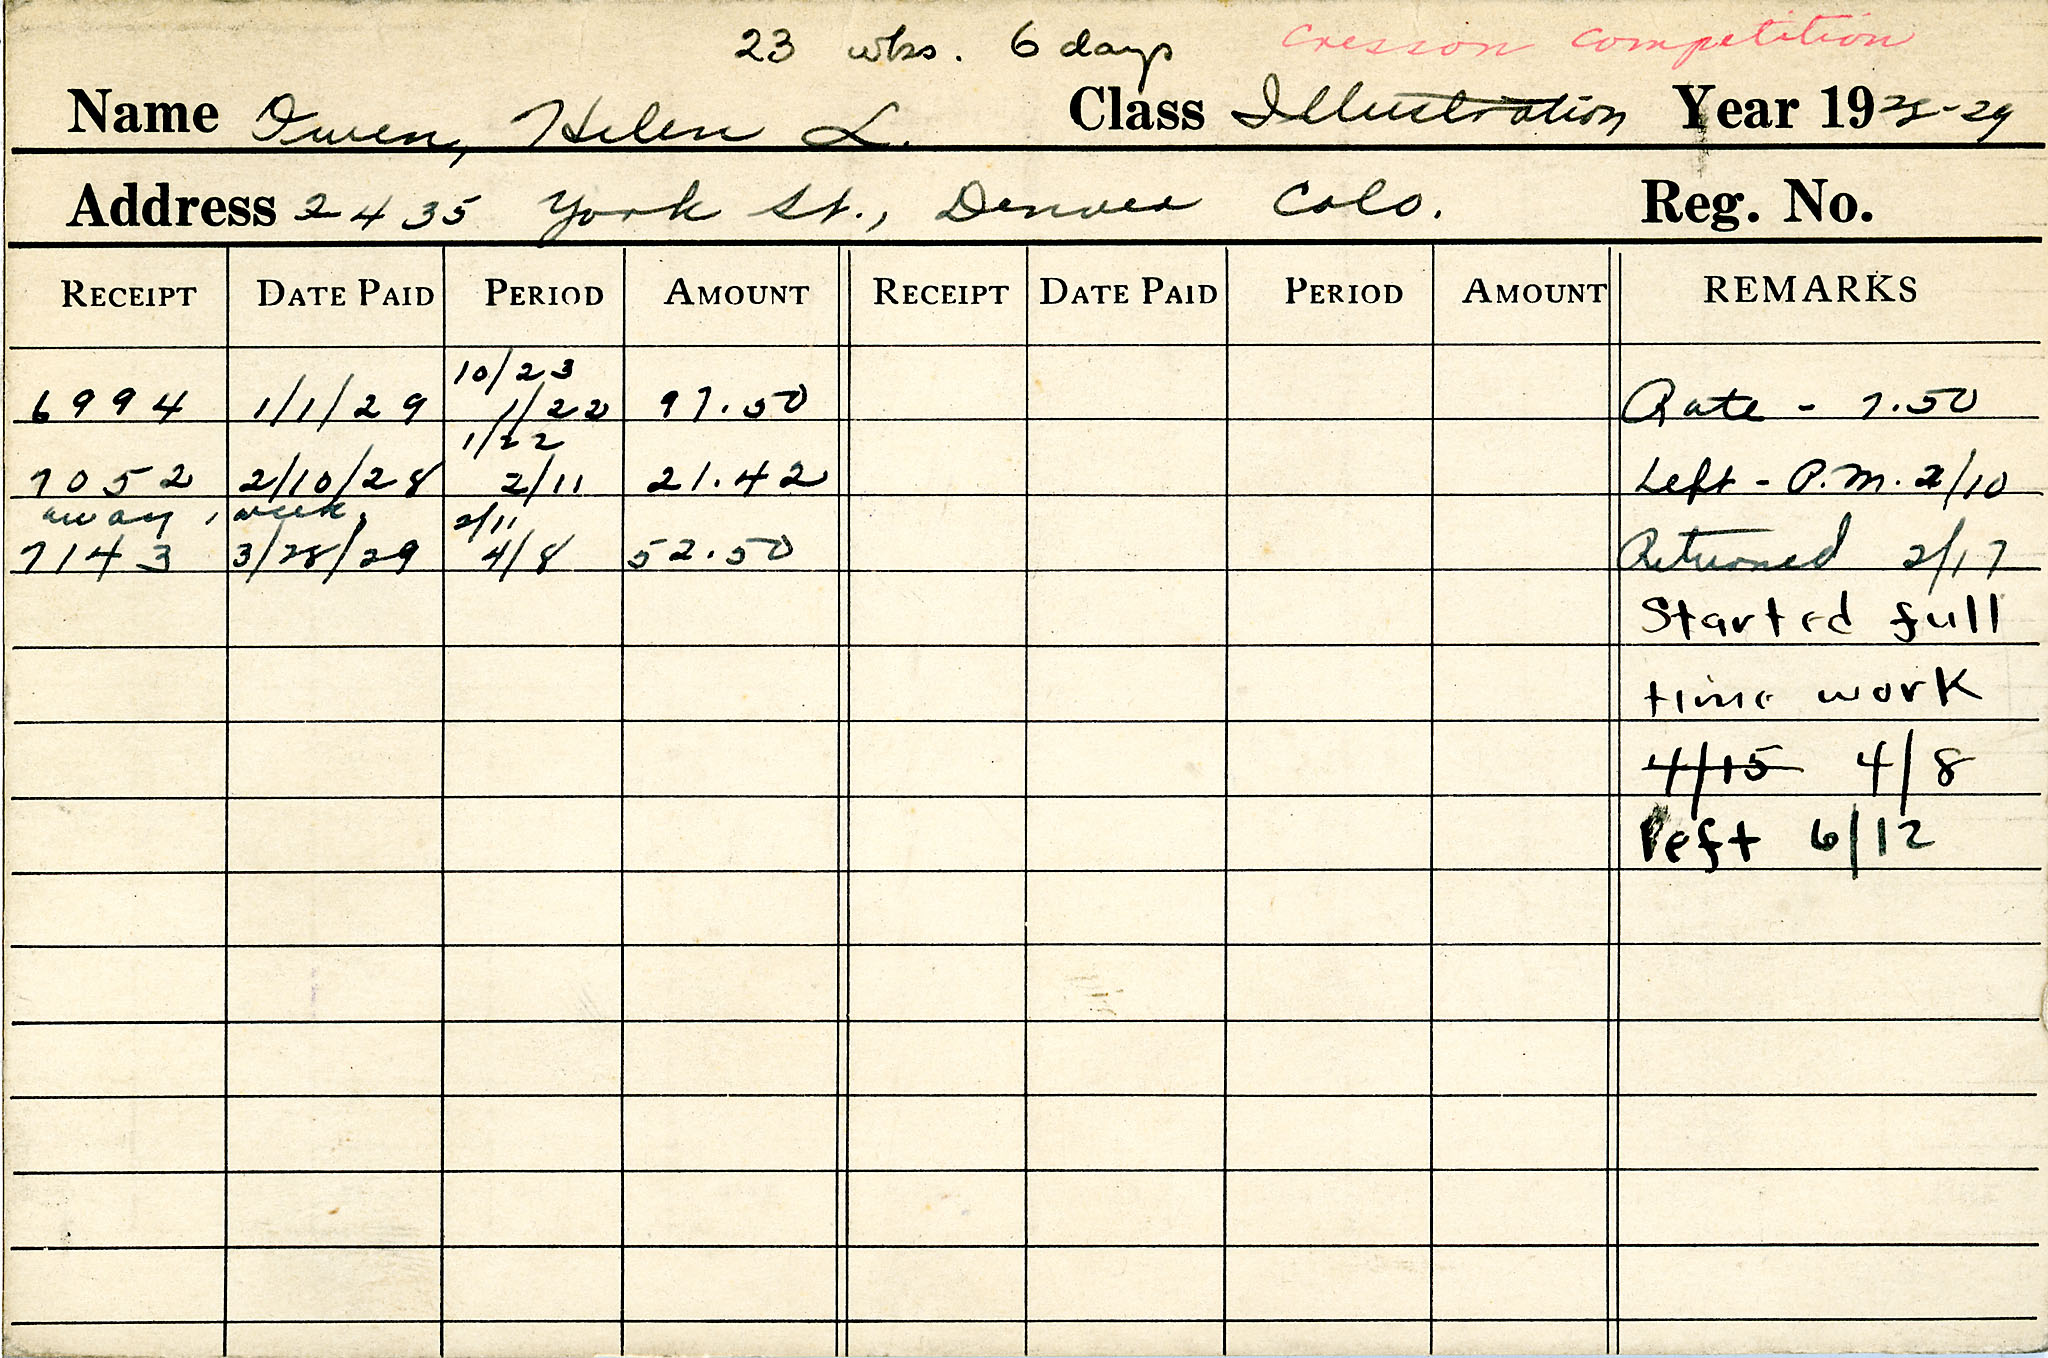 23 wks. 6 days cresson competition
Name Owen, Helen L. Class Illustration Year 1928-29
Address 2435 York St., Denver Colo. Reg. No.
RECEIPT DATE PAID PERIOD AMOUNT RECEIPT DATE PAID PERIOD AMOUNT REMARKS
10/23
6994 1/1/29 1/22 97.50 Rate - 7.50
1/22
7052 2/10/28 2/11 21.42 Left - P.M. 2/10
away 1 week. 2/11
7143 3/28/29 4/8 52.50 Returned 2/17
Started full
time work
4/15 4/8
left 6/12